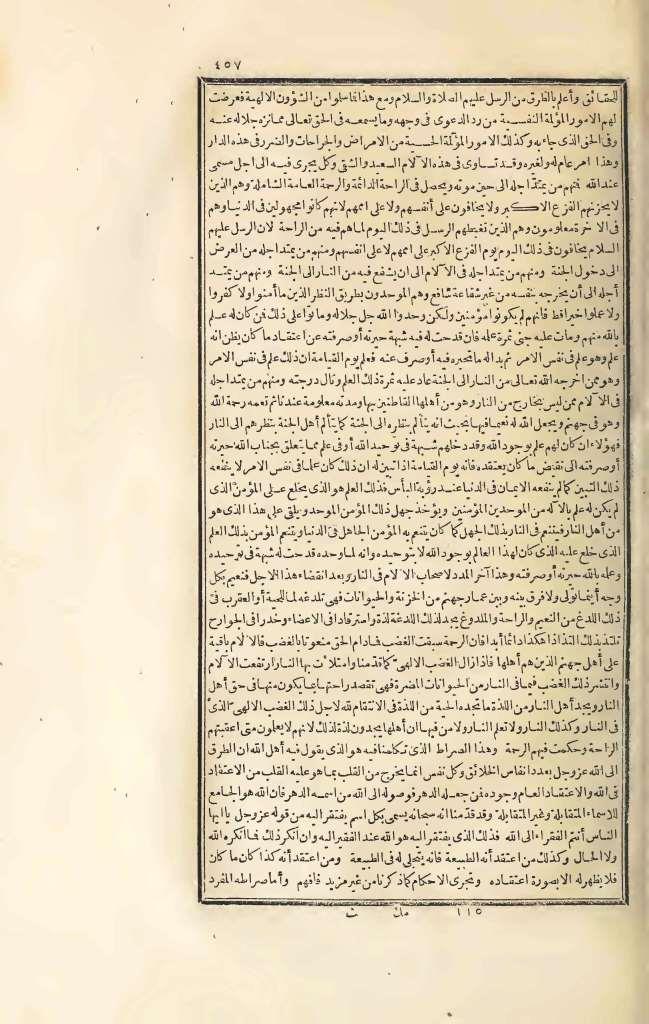 ٤٥٧
للحقائق وأعلم بالطرق من الرسل عليهم الصلاة والسلام ومع هذا فما سلوا من الشؤون الالهية فعرضت
لهم الامور المؤلمة النفسية من رد الدعوى في وجهه وما يسمعه في الحق تعالى مما نزه جلاله عنه
وفى الحق الذى جاء به وكذلك الامور المؤلمة الحسية من الامراض والجراحات والضرر فى هذه الدار
وهذا امر عام له ولغيره وقد تساوى فى هذه الآلام السعيد والشقى وكل يجرى فيه الى اجل مسمى
عند الله فمنهم من يمتد اجله الى حين موته ويحصل فى الراحة الدائمة والرحمة العامة الشاملة وهم الذين
لا يحزنهم الفزع الاكبر ولا يخافون على أنفسهم ولا على اممهم لانهم كانوا مجهولين فى الدنيا وهم
فى الآخرة معلومون وهم الذين تغبطهم الرسل فى ذلك اليوم لما هم فيه من الراحة لان الرسل عليهم
السلام يخافون فى ذلك اليوم يوم الفزع الاكبر على اممهم لا على انفسهم ومنهم من يمتد اجله من العرض
الى دخول الجنة ومنهم من يمتد اجله فى الآلام الى ان يشفع فيه من النار الى الجنة ومنهم من يمتد
أجله الى أن يخرجه بنفسه من غير شفاعة شافع وهم الموحدون بطريق النظر الذين ما أمنوا ولا كفروا
ولا عملوا خيرا قط فانهم لم يكونوا مؤمنين ولكن وحدوا الله جل جلاله وماتوا على ذلك فمن كان له علم
بالله منهم ومات عليه جنى ثمرة علمه فان قدحت له فيه شبهة حيرته أو صرفته عن اعتقاد ما كان يظن انه
علم وهو علم فى نفس الامر ثم بدا له ما تحيره فيه أو صرف عنه فعلم يوم القيامة ان ذلك علم فى نفس الامر
وهو ممن اخرجه الله تعالى من النار الى الجنة عاد عليه ثمرة ذلك العلم ونال درجته ومنهم من يمتد اجله
فى الآلام ممن ليس بخارج من النار وهو من أهلها القاطنين بها ومدته معلومة عندنا ثم تعمه رحمة الله
وهو فى جهنم ويجعل الله له نعيما فيها بحيث انه يتألم بنظره الى الجنة كما يتألم أهل الجنة بنظرهم الى النار
فهؤلاء ان كان لهم علم بوجود الله وقد دخلهم شبهة فى توحيد الله أو فى علم مما يتعلق بجناب الله حيرته
أو صرفته الى نقيض ما كان يعتقده فانه يوم القيامة اذا تبين له ان ذلك كان علما فى نفس الامر لا ينفعه
ذلك التبين كما لم ينفعه الايمان فى الدنيا عند رؤية البأس فذلك العلم هو الذى يخلع على المؤمن الذى
لم يكن له علم بالاله من الموحدين المؤمنين ويؤخذ جهل ذلك المؤمن الموحد ويلقى على هذا الذى هو
من أهل النار فيتنعم فى النار بذلك الجهل كما كان يتنعم به المؤمن الجاهل فى الدنيا ويتنعم المؤمن بذلك العلم
الذى خلع عليه الذى كان لهذا العالم بوجود الله لا بتوحيده وانه لما وحده قدحت له شبهة فى توحيده
وعلمه بالله حيرته أو صرفته وهذا آخر المدد لاصحاب الآلام فى النار وبعد انقضاء هذا الاجل فنعيم بكل
وجه أينما تولى ولا فرق بينه وبين عمار جهنم من الخزنة والحيوانات فهى تلدغه لما للحية أو العقرب فى
ذلك اللدغ من النعيم والراحة والملدوغ يجد لذلك اللدغة لذة واسترقادا فى الاعضاء وخدرا فى الجوارح
تلتذ بذلك التذاذا هكذا دائما أبدا فان الرحمة سبقت الغضب فمادام الحق منعوتا بالغضب فالآلام باقية
على أهل جهنم الذين هم أهلها فاذا زال الغضب الالهى كما قدمنا وامتلأت بها النار ارتفعت الآلام
وانتشر ذلك الغضب فيما فى النار من الحيوانات المضرة فهى تقصد راحتها بما يكون منها فى حق أهل
النار ويجد أهل النار من اللذة ما تجده الحية من اللذة فى الانتقام لله لاجل ذلك الغضب الالهى الذى
فى النار وكذلك النار ولا تعلم النار ولا من فيها ان أهلها يجدون لذة لذلك لانهم لا يعلمون متى اعقبتهم
الراحة وحكمت فيهم الرحمة وهذا الصراط الذى تكلمنا فيه هو الذى يقول فيه أهل الله ان الطرق
الى الله عز وجل بعدد انفاس الخلائق وكل نفس انما يخرج من القلب بما هو عليه القلب من الاعتقاد
فى الله والاعتقاد العام وجوده فمن جعله الدهر فوصوله الى الله من اسمه الدهر فان الله هو الجامع
للاسماء المتقابلة وغير المتقابلة وقد قدمنا انه سبحانه يسمى بكل اسم يفتقر اليه من قوله عز وجل يا ايها
الناس أنتم الفقراء الى الله فذلك الذى يفتقر اليه هو الله عند الفقير اليه وان أنكر ذلك فما أنكره الله
ولا الحال وكذلك من اعتقد أنه الطبيعة فانه يتجلى له فى الطبيعة ومن اعتقد أنه كذا كان ما كان
فلا يظهر له الا بصورة اعتقاده وتجرى الاحكام كما ذكرنا من غير مزيد فافهم وأما صراطه المفرد
١١٥ مك ث